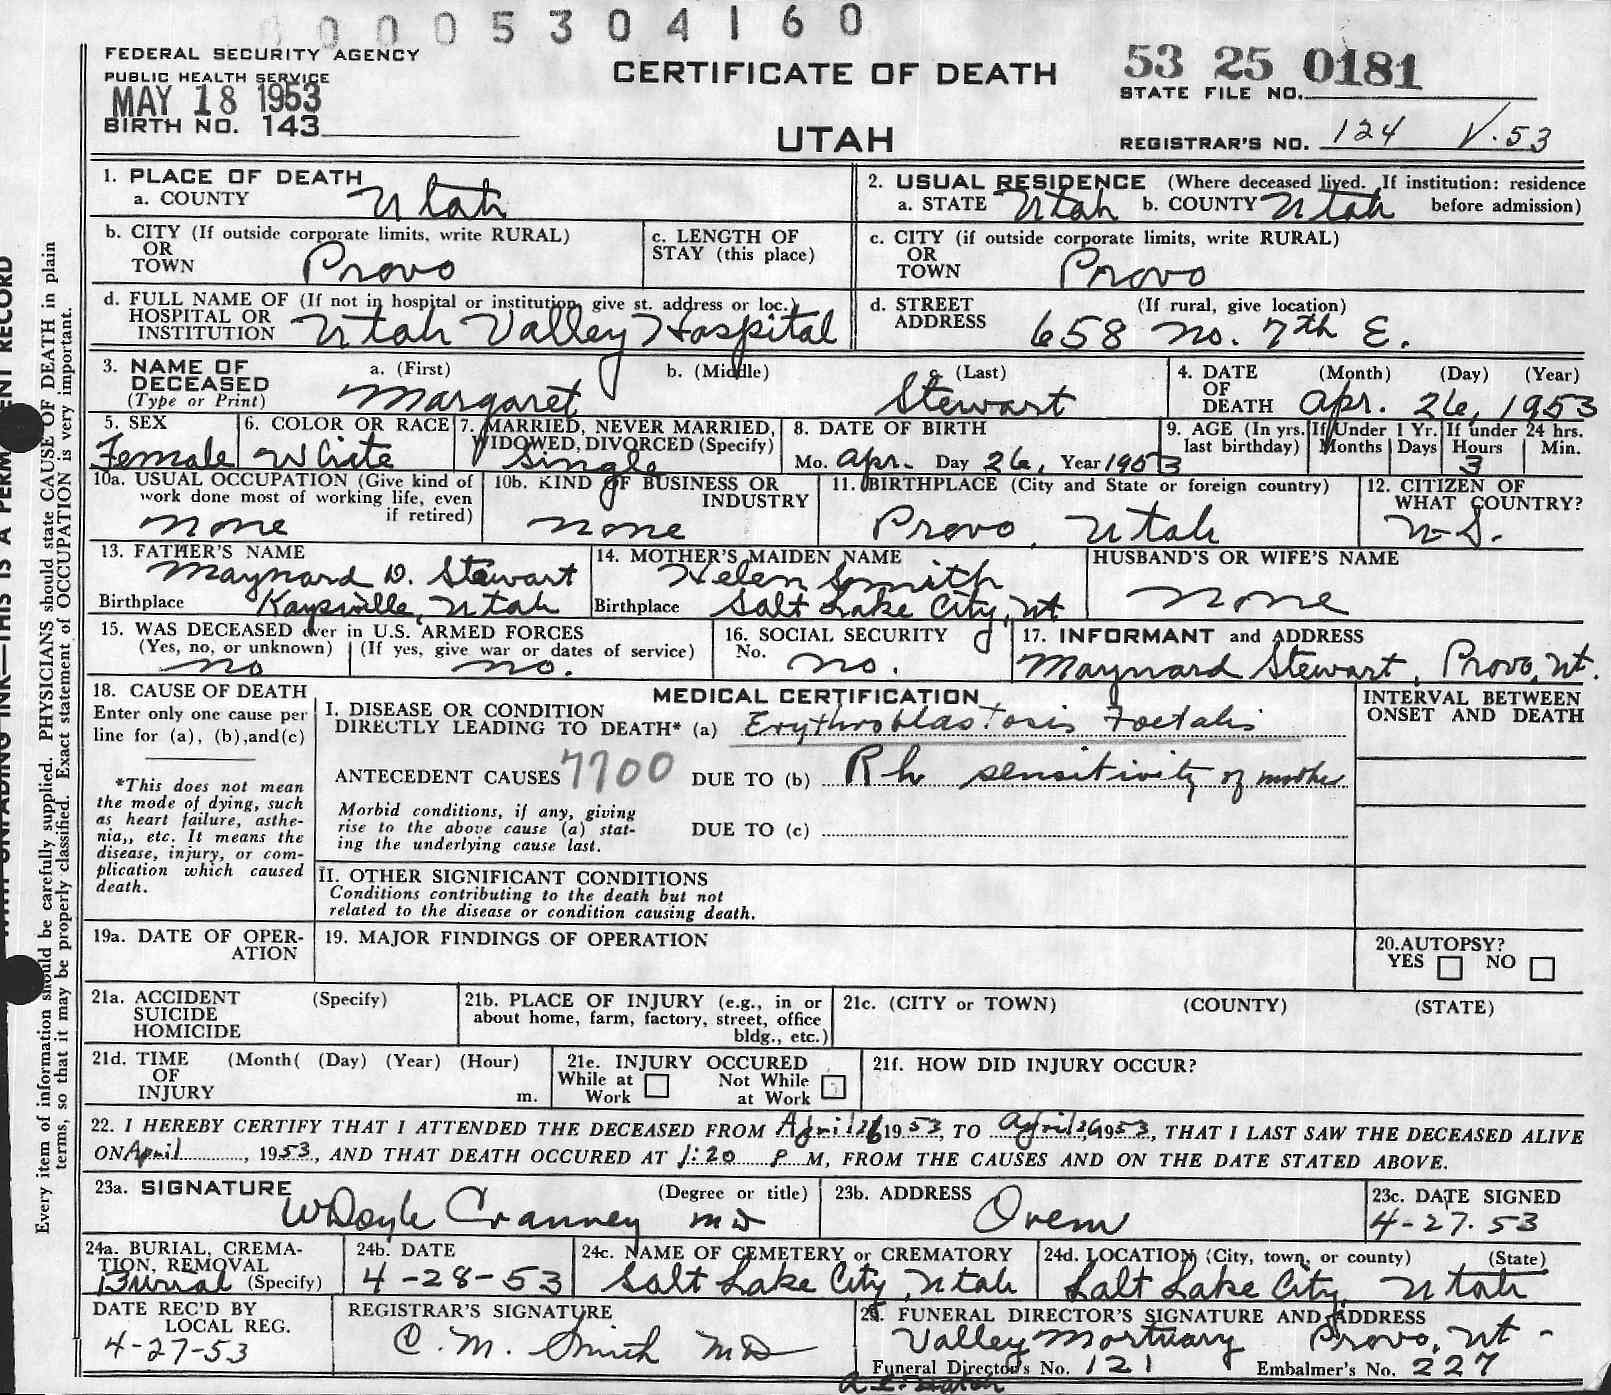 0005304160
FEDERAL SECURITY AGENCY
PUBLIC HEALTH SERVICE
MAY 18 1953
BIRTH NO. 143
CERTIFICATE OF DEATH
UTAH
53 25 0181
STATE FILE NO.
REGISTRAR'S NO. 124 V.53
1. PLACE OF DEATH
a. COUNTY Utah
2. USUAL RESIDENCE (Where deceased lived. If institution: residence before admission)
a. STATE Utah b. COUNTY Utah
b. CITY (If outside corporate limits, write RURAL) OR TOWN Provo
c. LENGTH OF STAY (this place)
c. CITY (if outside corporate limits, write RURAL) OR TOWN Provo
d. FULL NAME OF (If not in hospital or institution, give st. address or loc.) HOSPITAL OR INSTITUTION Utah Valley Hospital
d. STREET ADDRESS (If rural, give location) 658 No. 7th E.
3. NAME OF DECEASED (Type or Print) a. (First) b. (Middle) c. (Last)
Margaret Stewart
4. DATE OF DEATH (Month) (Day) (Year) Apr. 26, 1953
5. SEX Female
6. COLOR OR RACE White
7. MARRIED, NEVER MARRIED, WIDOWED, DIVORCED (Specify) Single
8. DATE OF BIRTH Mo. Apr. Day 26, Year 1953
9. AGE (In yrs. last birthday) If Under 1 Yr. Months Days If under 24 hrs. Hours Min.
3
10a. USUAL OCCUPATION (Give kind of work done most of working life, even if retired) none
10b. KIND OF BUSINESS OR INDUSTRY none
11. BIRTHPLACE (City and State or foreign country) Provo, Utah
12. CITIZEN OF WHAT COUNTRY? U.S.
13. FATHER'S NAME Maynard D. Stewart
Birthplace Kaysville, Utah
14. MOTHER'S MAIDEN NAME Helen Smith
Birthplace Salt Lake City, Ut
HUSBAND'S OR WIFE'S NAME none
15. WAS DECEASED ever in U.S. ARMED FORCES
(Yes, no, or unknown) (If yes, give war or dates of service)
no no.
16. SOCIAL SECURITY No. no.
17. INFORMANT and ADDRESS
Maynard Stewart, Provo, Ut.
18. CAUSE OF DEATH
Enter only one cause per line for (a), (b), and (c)
*This does not mean the mode of dying, such as heart failure, asthenia,, etc. It means the disease, injury, or complication which caused death.
MEDICAL CERTIFICATION
I. DISEASE OR CONDITION DIRECTLY LEADING TO DEATH* (a) Erythroblastosis Foetalis
ANTECEDENT CAUSES 7700 DUE TO (b) Rh sensitivity of mother
Morbid conditions, if any, giving rise to the above cause (a) stating the underlying cause last.
DUE TO (c)
II. OTHER SIGNIFICANT CONDITIONS
Conditions contributing to the death but not related to the disease or condition causing death.
INTERVAL BETWEEN ONSET AND DEATH
19a. DATE OF OPERATION
19. MAJOR FINDINGS OF OPERATION
20. AUTOPSY?
YES NO
21a. ACCIDENT SUICIDE HOMICIDE (Specify)
21b. PLACE OF INJURY (e.g., in or about home, farm, factory, street, office bldg., etc.)
21c. (CITY or TOWN) (COUNTY) (STATE)
21d. TIME OF INJURY (Month( (Day) (Year) (Hour) m.
21e. INJURY OCCURED
While at Work Not While at Work
21f. HOW DID INJURY OCCUR?
22. I HEREBY CERTIFY THAT I ATTENDED THE DECEASED FROM April 26 1953, TO April 26 1953, THAT I LAST SAW THE DECEASED ALIVE
ON April, 1953, AND THAT DEATH OCCURED AT 1:20 P M, FROM THE CAUSES AND ON THE DATE STATED ABOVE.
23a. SIGNATURE (Degree or title) W Doyle Cranney MD
23b. ADDRESS Orem
23c. DATE SIGNED 4-27-53
24a. BURIAL, CREMATION, REMOVAL (Specify) Burial
24b. DATE 4-28-53
24c. NAME OF CEMETERY or CREMATORY Salt Lake City, Utah
24d. LOCATION (City, town, or county) (State) Salt Lake City, Utah
DATE REC'D BY LOCAL REG. 4-27-53
REGISTRAR'S SIGNATURE C. M. Smith MD
25. FUNERAL DIRECTOR'S SIGNATURE AND ADDRESS
Valley Mortuary Provo, Ut-
Funeral Director's No. 121 Embalmer's No. 227
Every item of information should be carefully supplied. PHYSICIANS should state CAUSE OF DEATH in plain
terms, so that it may be properly classified. Exact statement of OCCUPATION is very important.